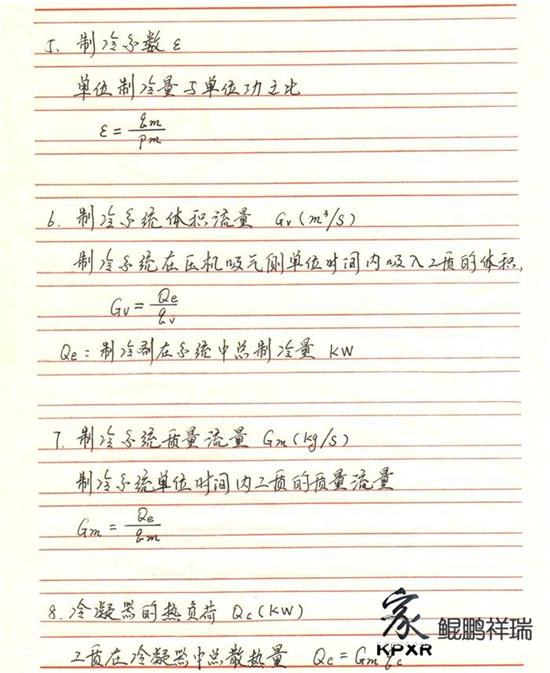 5、制冷系数 ε
单位制冷量与单位功之比
ε = qm/Pm
6、制冷系统体积流量 Gv(m³/s)
制冷系统在压机吸气侧单位时间内吸入工质的体积,
Gv = Qe/qv
Qe:制冷剂在系统中总制冷量 KW
7、制冷系统质量流量 Gm(kg/s)
制冷系统单位时间内工质的质量流量
Gm = Qe/qm
8.冷凝器的热负荷 Qc(KW)
工质在冷凝器中总散热量 Qc = Gm qc
家 KPXR 鲲鹏祥瑞